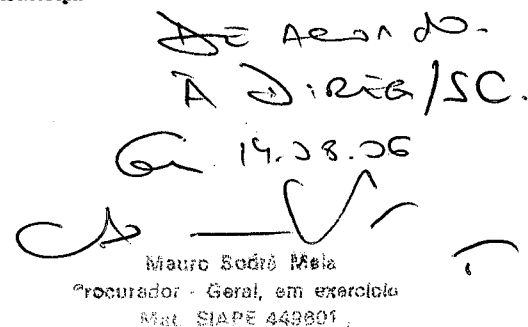 De acordo.
À DIREG/SC.
Em 14.08.06
Mauro Sodré Maia
Procurador - Geral, em exercício
Mat. SIAPE 449601